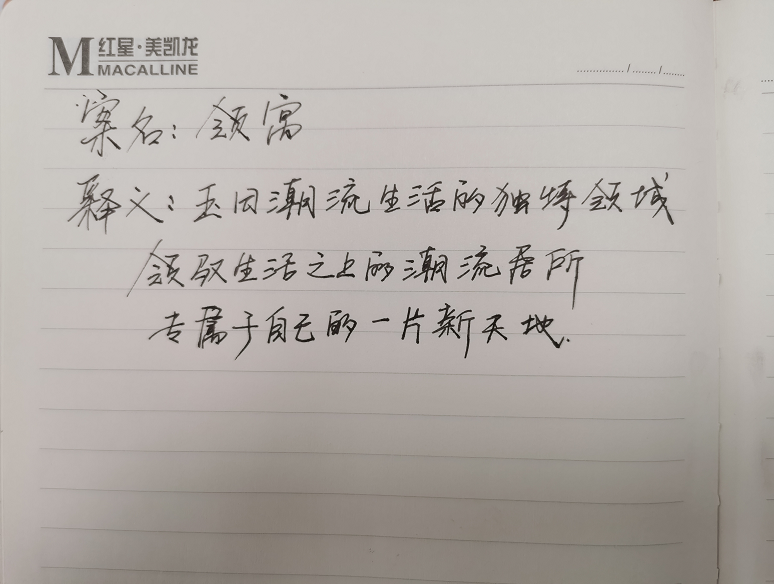 M 红星·美凯龙
MACALLINE
案名：领寓
释义：玉田潮流生活的独特领域
领驭生活之上的潮流居所
专属于自己的一片新天地.